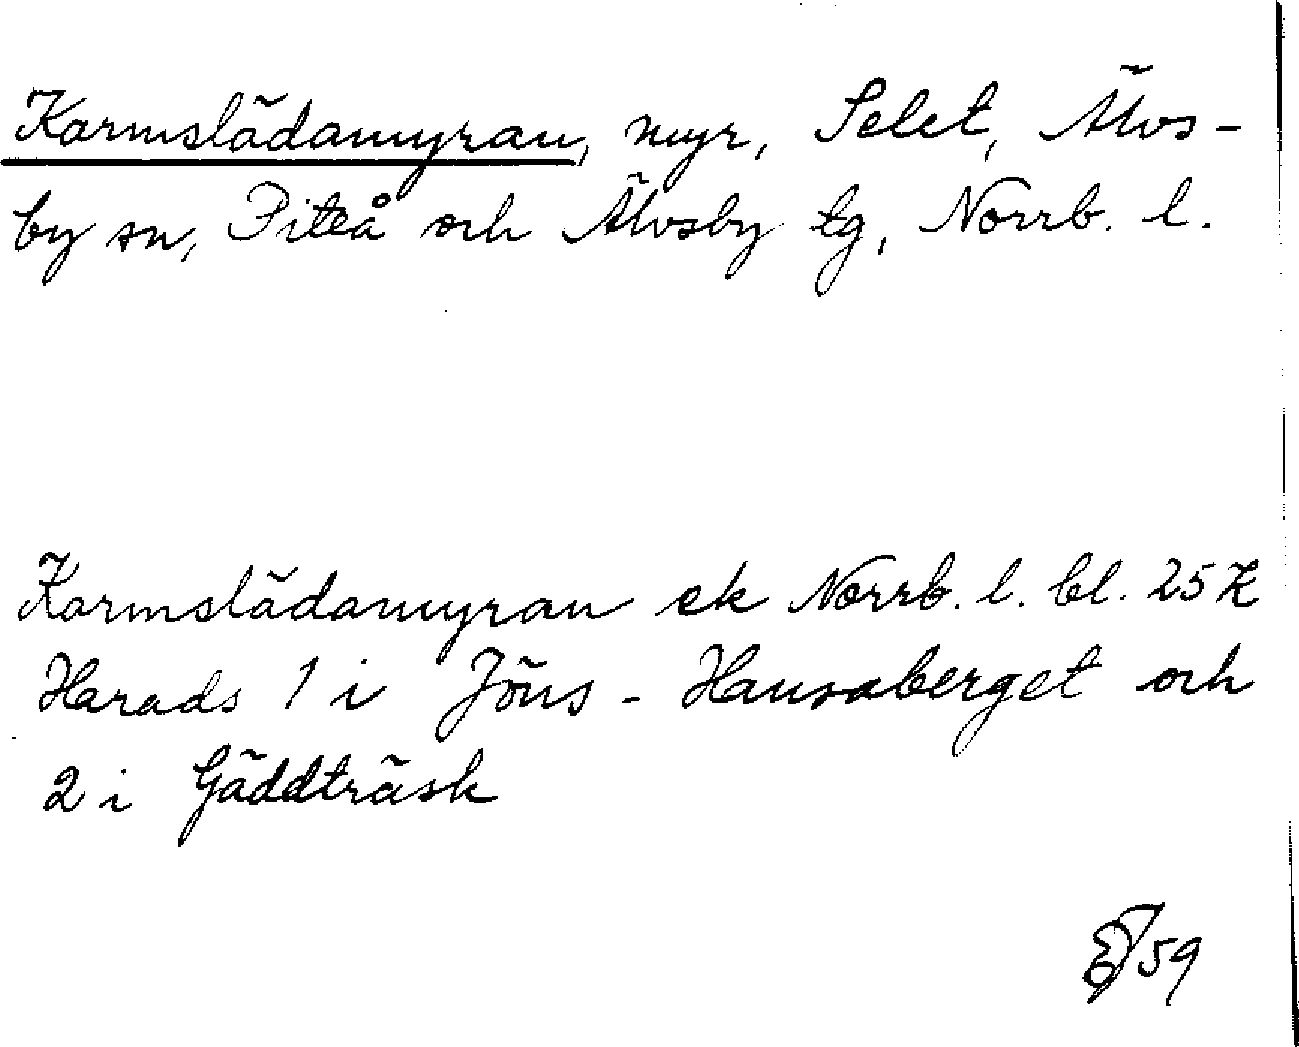 Karmslädamyran, myr, Selet, Älvs-
by sn, Piteå och Älvsby tg, Norrb. l.
Karmslädamyran ek Norrb. l. bl. 25 K
Harads 1 i Jöns-Hansaberget och
2 i Gäddträsk
59